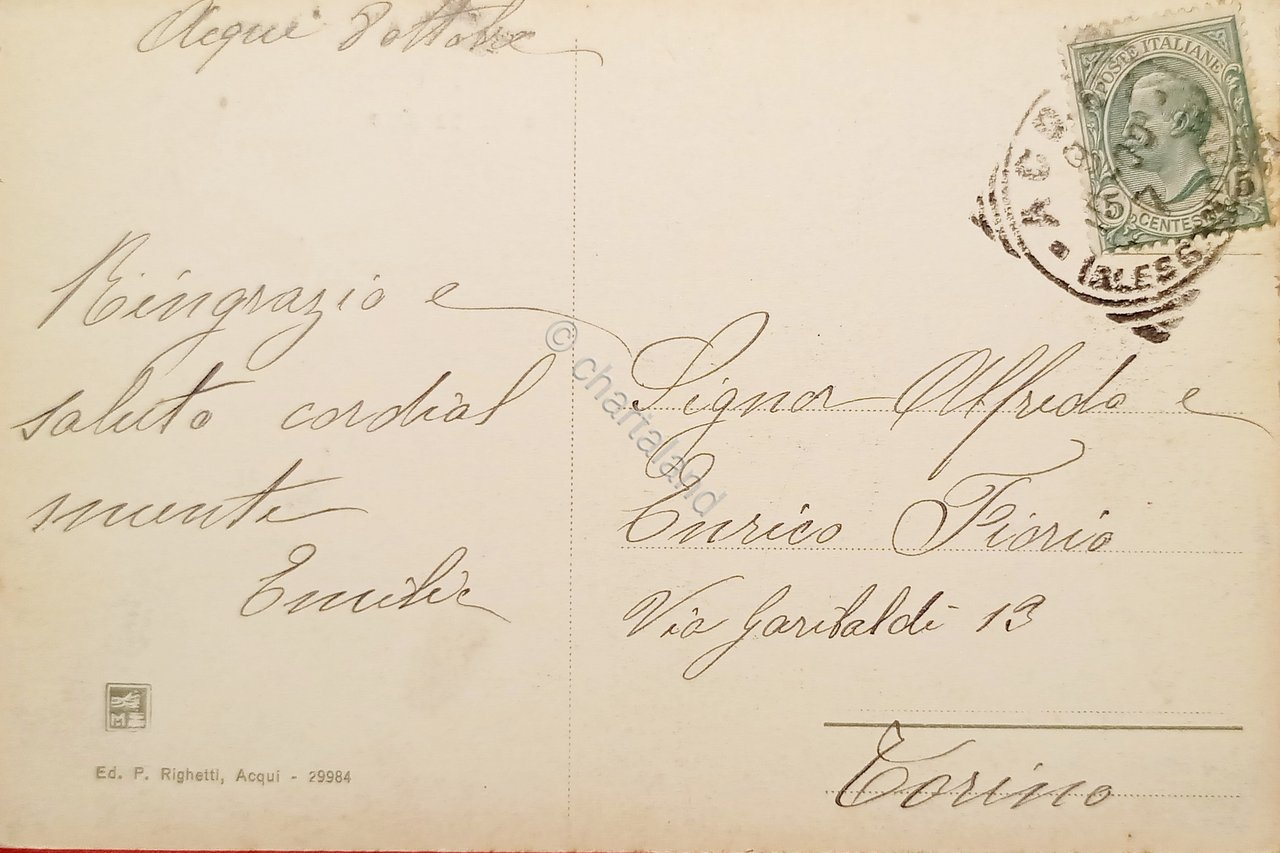 Acqui 8 ottobre
Ringrazio e
saluto cordial
mente
Emilia
Ed. P. Righetti, Acqui - 29984
POSTE ITALIANE
5 CENTES 5
ACQ
(ALESS
Signor Alfredo e
Enrico Fiorio
Via Garibaldi 13
Torino
© chartaland